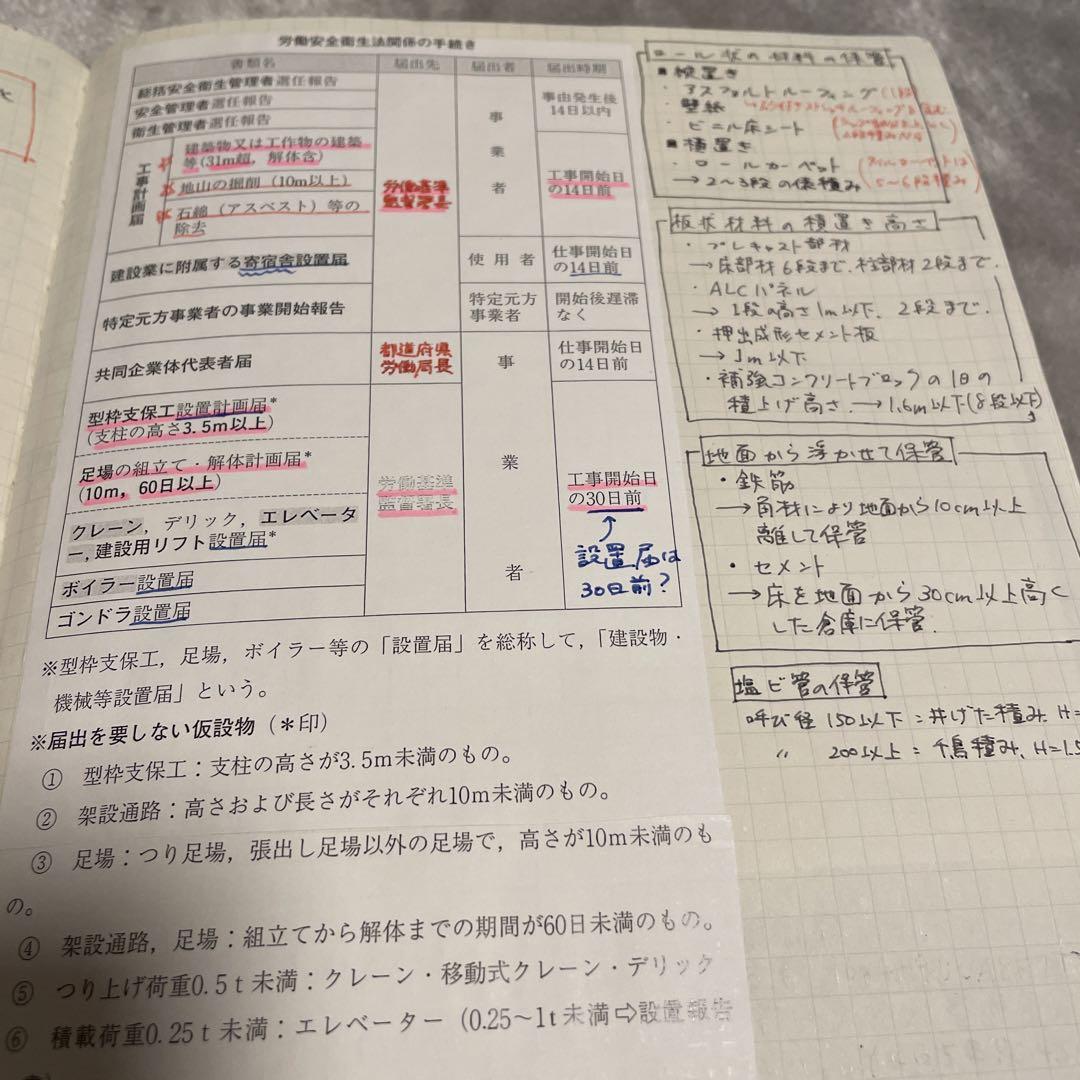 労働安全衛生法関係の手続き
書類名 届出先 届出者 届出時期
総括安全衛生管理者選任報告
安全管理者選任報告
衛生管理者選任報告
事由発生後
14日以内
工事計画届
建築物又は工作物の建築
等(31m超，解体含)
地山の掘削（10m以上）
石綿（アスベスト）等の
除去
労働基準
監督署長
事業者
工事開始日
の14日前
建設業に附属する寄宿舎設置届 使用者 仕事開始日
の14日前
特定元方事業者の事業開始報告 特定元方
事業者
開始後遅滞
なく
共同企業体代表者届
都道府県
労働局長
仕事開始日
の14日前
型枠支保工設置計画届*
(支柱の高さ3.5m以上)
足場の組立て・解体計画届*
(10m，60日以上)
クレーン，デリック，エレベータ
ー,建設用リフト設置届*
ボイラー設置届
ゴンドラ設置届
労働基準
監督署長
事業者
工事開始日
の30日前
設置届は
30日前?
※型枠支保工，足場，ボイラー等の「設置届」を総称して，「建設物・
機械等設置届」という。
※届出を要しない仮設物（＊印）
① 型枠支保工：支柱の高さが3.5m未満のもの。
② 架設通路：高さおよび長さがそれぞれ10m未満のもの。
③ 足場：つり足場，張出し足場以外の足場で，高さが10m未満のも
の。
④ 架設通路，足場：組立てから解体までの期間が60日未満のもの。
⑤ つり上げ荷重0.5t未満：クレーン・移動式クレーン・デリック
⑥ 積載荷重0.25t未満：エレベーター（0.25～1t未満⇨設置報告
ロール状の材料の保管
■縦置き
・アスファルトルーフィング
・壁紙
・ビニル床シート
■横置き
・ロールカーペット
→2～3段の俵積み
5～6段積み
板状材料の積置き高さ
・プレキャスト部材
→床部材6段まで.柱部材2段まで.
・ALCパネル
→1段の高さ1m以下、2段まで.
・押出成形セメント板
→1m以下
・補強コンクリートブロックの1日の
積上げ高さ.→1.6m以下(8段以下)
地面から浮かせて保管
・鉄筋
→角材により地面から10cm以上
離して保管
・セメント
→床を地面から30cm以上高く
した倉庫に保管.
塩ビ管の保管
呼び径 150以下:井げた積み.H=
〃 200以上:千鳥積み.H=1.5